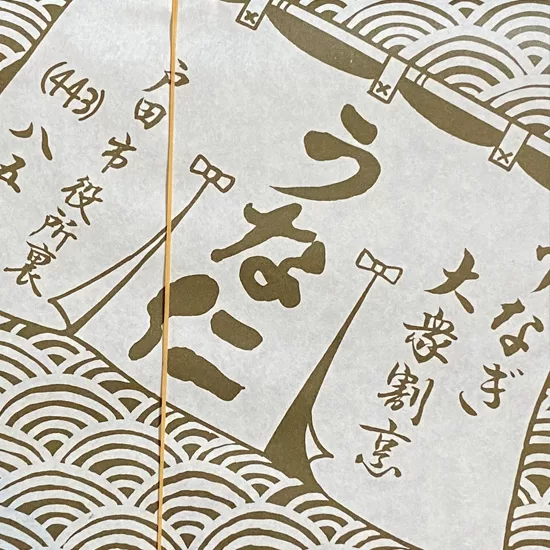 うなぎ
大衆割烹
うなに
戸田市役所裏
(443)
八五